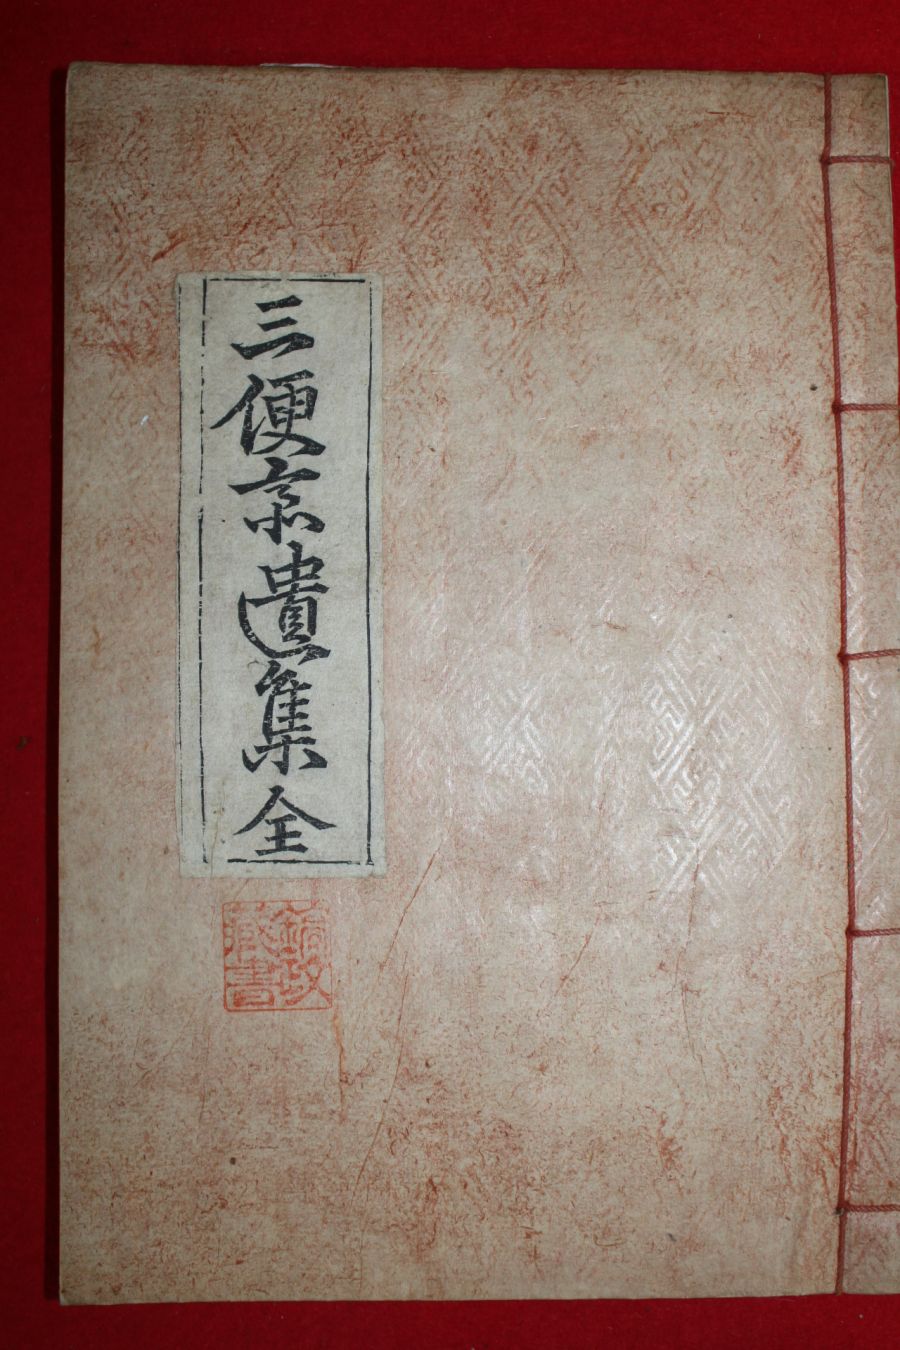 三便齋遺集全
藏書